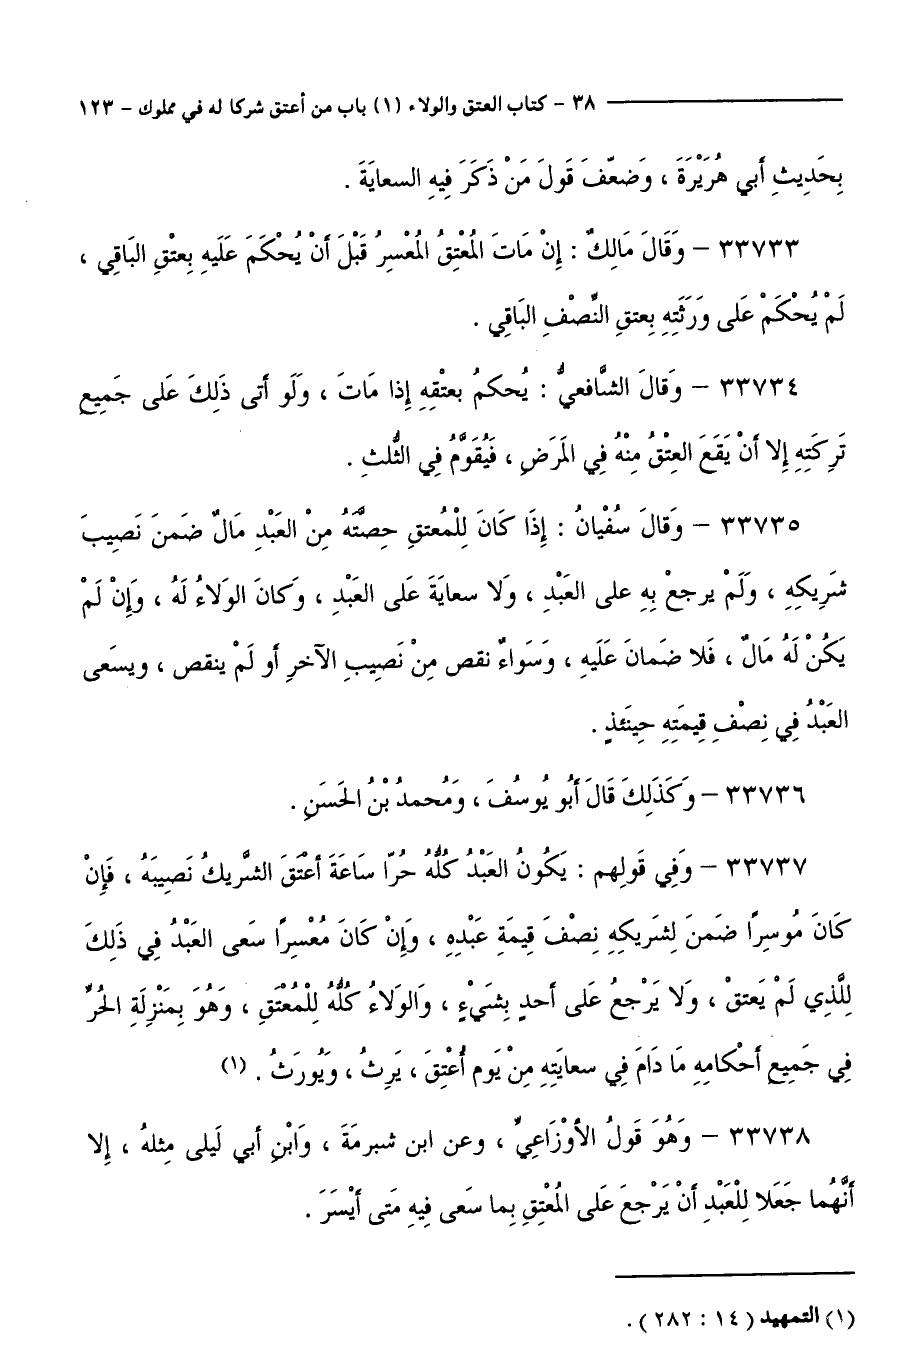 ٣٨ - كتاب العتق والولاء (١) باب من أعتق شركا له في مملوك - ١٢٣
بِحَدِيثِ أَبي هُرَيْرَةَ ، وَضعَّفَ قَولَ مَنْ ذَكَرَ فِيهِ السعايَةَ .
٣٣٧٣٣ - وَقَالَ مَالِكٌ : إِنْ مَاتَ المُعْتِقُ المُعْسِرُ قَبْلَ أَنْ يُحْكَمَ عَلَيهِ بِعتْقِ البَاقِي ،
لَمْ يُحْكَمْ عَلى وَرَثَتِهِ بِعتقِ النِّصْفِ البَاقِي .
٣٣٧٣٤ - وَقالَ الشَّافعيُّ : يُحكمُ بعتْقِهِ إِذا مَاتَ ، وَلَو أتى ذَلِكَ عَلى جَمِيعِ
تَرِكَتِهِ إِلا أَنْ يَقَعَ العِتْقُ مِنْهُ فِي المَرَضِ ، فَيُقَوَّمُ فِي الثُّلثِ .
٣٣٧٣٥ - وَقالَ سُفْيانُ : إِذَا كَانَ لِلْمُعتقِ حِصَّتَهُ مِنْ العَبْدِ مَالٌ ضَمنَ نَصِيبَ
شَرِيكِهِ ، وَلَمْ يرجعْ بِهِ على العَبْدِ ، وَلا سعايَةَ عَلَى العَبْدِ ، وَكانَ الوَلاءُ لَهُ ، وَإِنْ لَمْ
يَكُنْ لَهُ مَالٌ ، فَلا ضَمانَ عَلَيهِ ، وَسَواءٌ نقص مِنْ نَصِيبِ الآخرِ أو لَمْ ينقص ، ويسَعى
العَبْدُ فِي نِصْفِ قِيمَتِهِ حِينَئذٍ .
٣٣٧٣٦ - وَكَذَلِكَ قَالَ أَبُو يُوسُفَ ، وَمُحمدُ بْنُ الحَسَنِ .
٣٣٧٣٧ - وَفِي قَولِهم : يَكُونُ العَبْدُ كُلُّهُ حُرّا سَاعَةَ أَعْتَقَ الشَّريكُ نَصِيبَهُ ، فَإِنْ
كَانَ مُوسِرًا ضَمنَ لِشَريكِهِ نِصْفَ قيمَةِ عَبْدِهِ ، وَإِنْ كَانَ مُعْسِرًا سَعى العَبْدُ فِي ذَلِكَ
لِلَّذِي لَمْ يَعتقْ ، وَلا يَرْجعُ عَلى أحدٍ بِشَيْءٍ ، وَالوَلاءُ كُلُّهُ لِلْمُعْتَقِ ، وَهُوَ بِمَنْزِلَةِ الحُرِّ
فِي جَمِيعِ أحْكامِهِ مَا دَامَ فِي سعايَتِهِ مِنْ يَوم أُعْتِقَ ، يَرِثُ ، وَيُورَثُ . (١)
٣٣٧٣٨ - وَهُوَ قَولُ الأوْزَاعِيِّ ، وعن ابن شبرمَةَ ، وَابْنِ أبي لَيلى مِثلهُ ، إِلا
أَنَّهُما جَعَلا لِلْعَبْدِ أَنْ يَرْجعَ عَلى المُعْتِقِ بِما سَعى فِيهِ مَتى أَيْسَرَ .
(١) التمهيد ( ١٤ : ٢٨٢ ) .